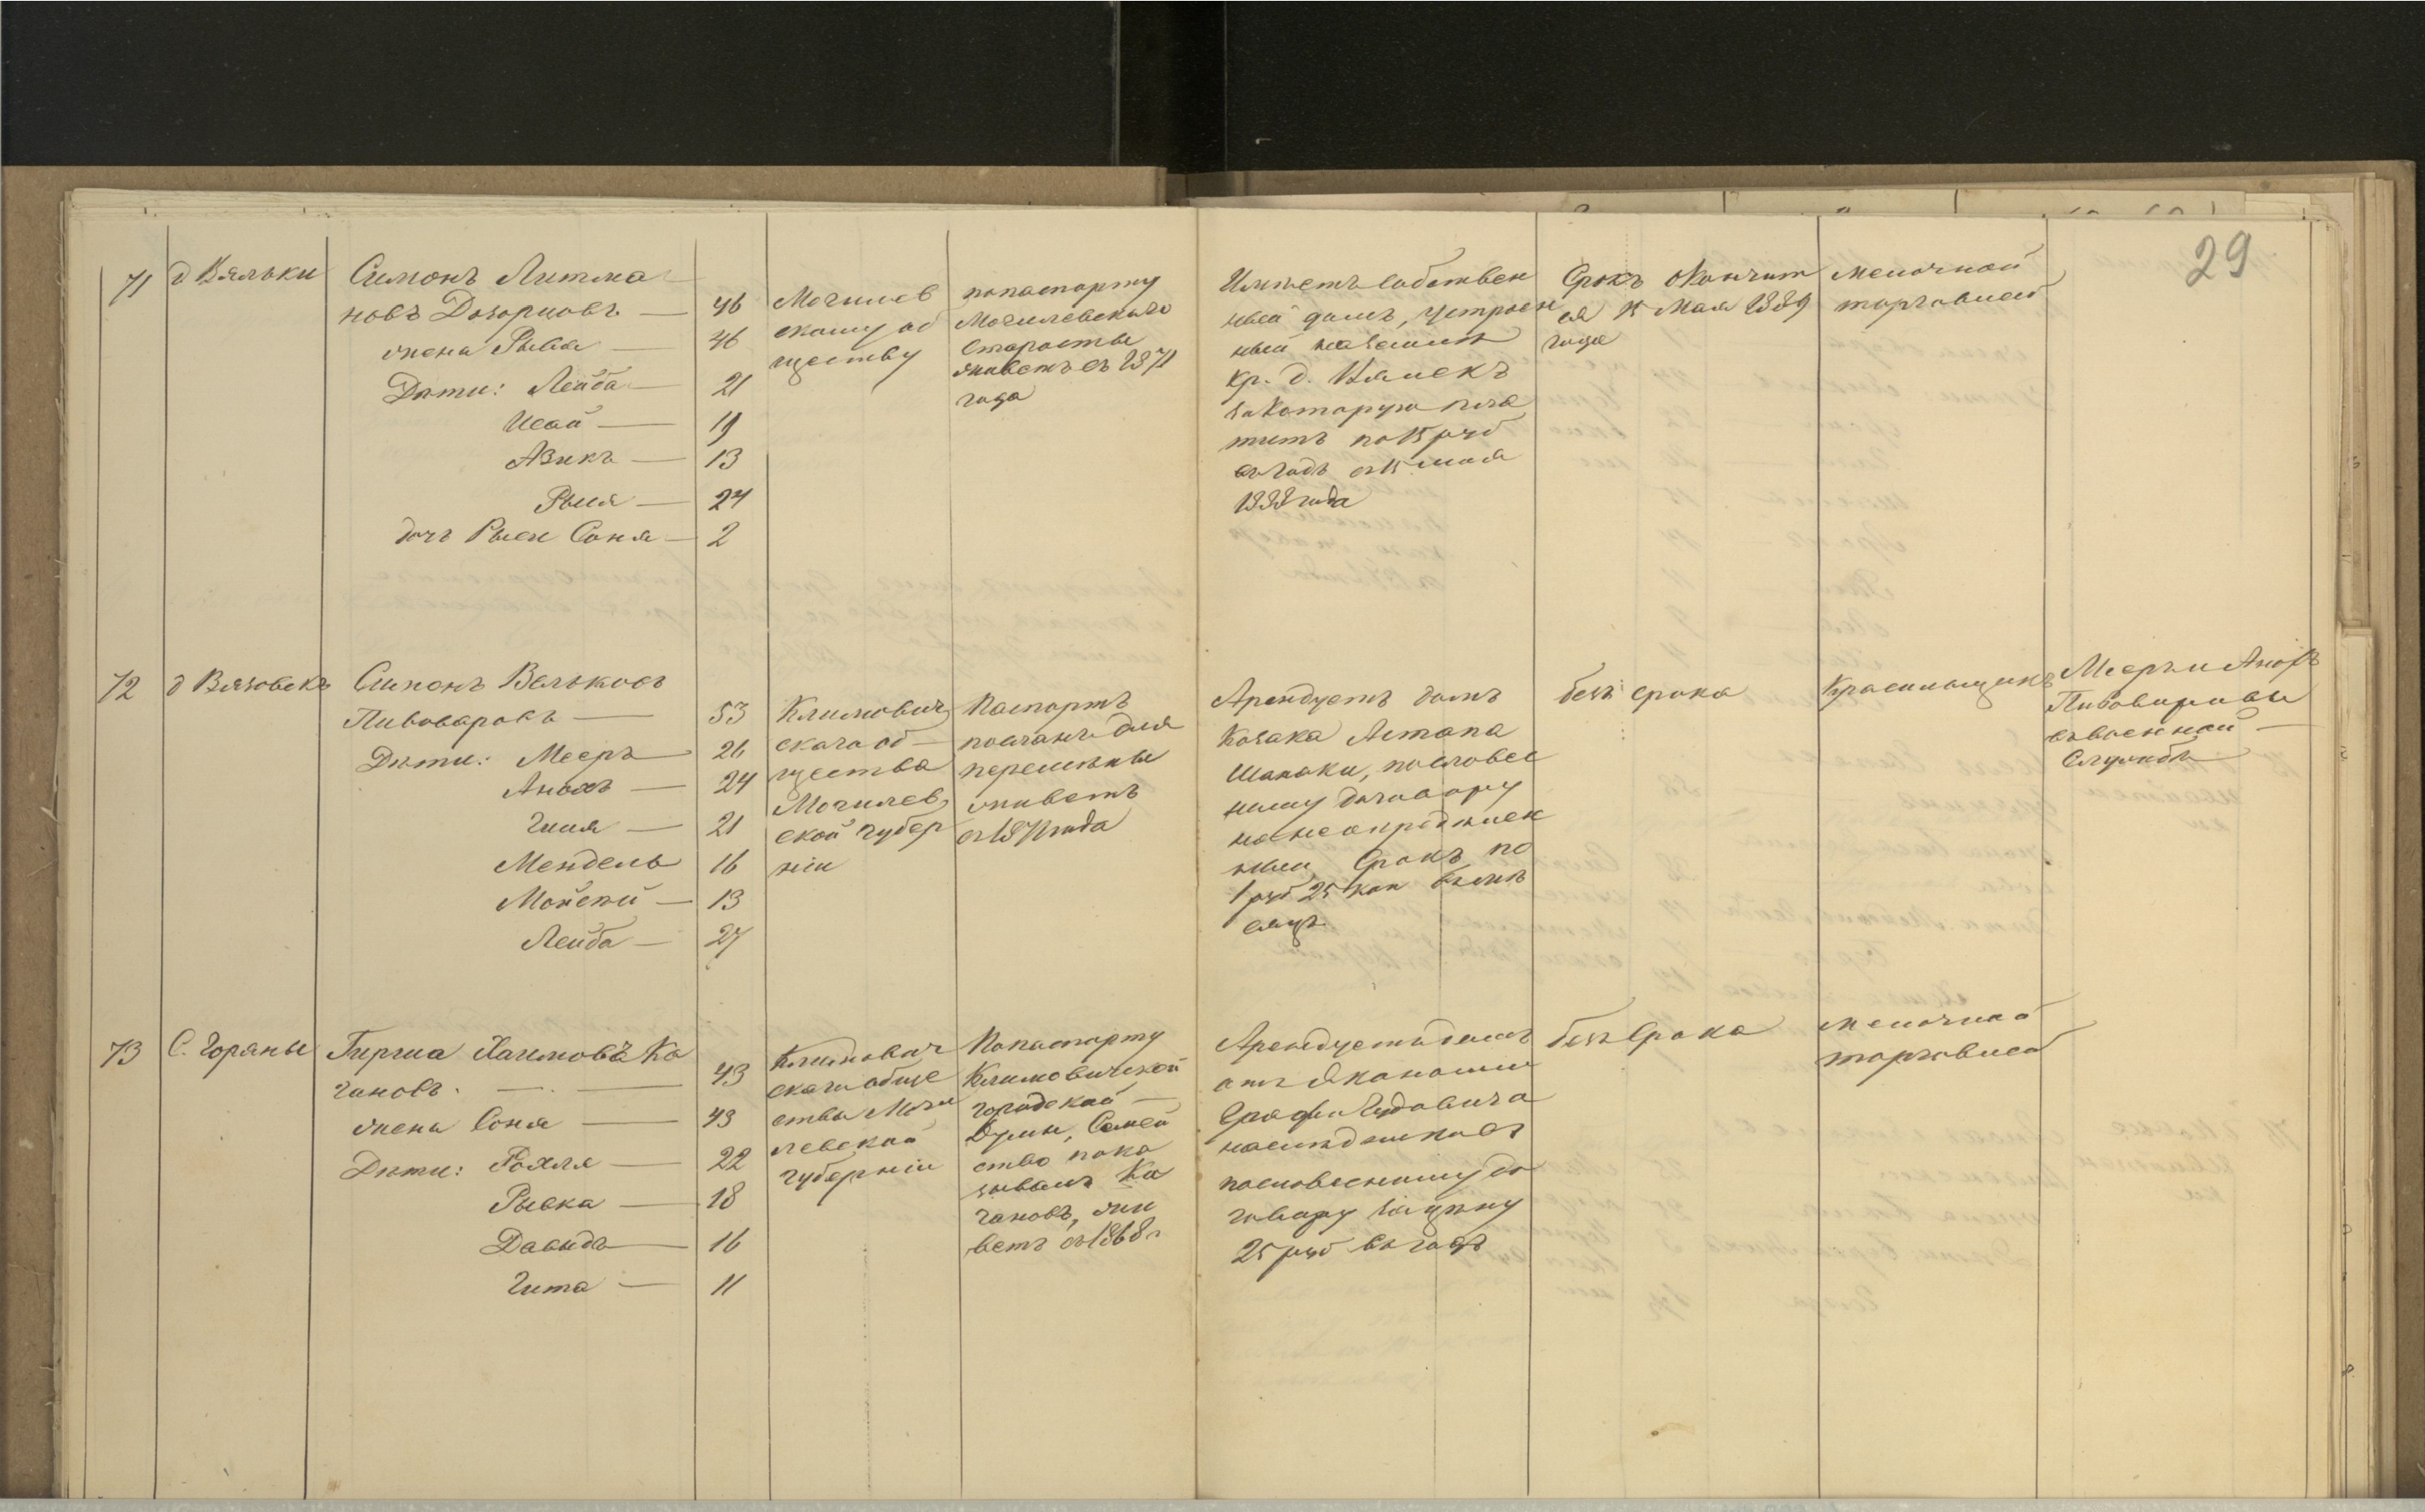 29
71
д Вяльки
Симонъ Литма
новъ Дозорцовъ — 46
жена Рыва — 46
Дѣти: Лейба — 21
Исай — 19
Азикъ — 13
Рыся — 24
дочь Рыси Соня — 2
Могилев
скому об
ществу
попаспорту
Могилевскаго
Старосты
живетъ съ 1871
года
Имѣетъ собствен
ный домъ, устроен
ный на земли
кр. д.
за которую пла
титъ по 15 руб
въ годъ съ 15 мая
1888 года
Срокъ окончит
ся 15 Мая 1889
года
мелочной
торговлей
72
д Вязовскъ
Симонъ Вольковъ
Пивоваровъ — 53
Дѣти: Мееръ — 26
Анохъ — 24
Гися — 21
Мендель 16
Мойсей — 13
Лейба — 27
Климович
скаго об
щества
Могилев
ской губер
ніи
Паспортъ
посланъ для
перемѣны
живетъ
съ 1871 года
Арендуетъ домъ
Козака
пословес
ному договору
на неопредѣлен
ный Срокъ по
1 руб 25 коп въ мѣ
сяцъ
безъ срока
Красильщикъ
Мееръ и Анохъ
Пивоваровы
въ военной
Службѣ
73
С. Горяны
Гирша Хаимовъ Ка
гановъ. — 43
жена Соня — 43
Дѣти: Рохля — 22
Рывка — 18
Давыдъ — 16
Гита — 11
Климович
скаго обще
ства Моги
левской
губерніи
Попаспорту
Климовичской
городской
Думы, Семей
ство пока
зывалъ Ка
гановъ, жи
ветъ съ 1868 г
Арендуетъ домъ
отъ Экономіи
Графа Гудовича
пословесному до
говору за цѣну
25 руб въ годъ
безъ Срока
мелочной
торговлей